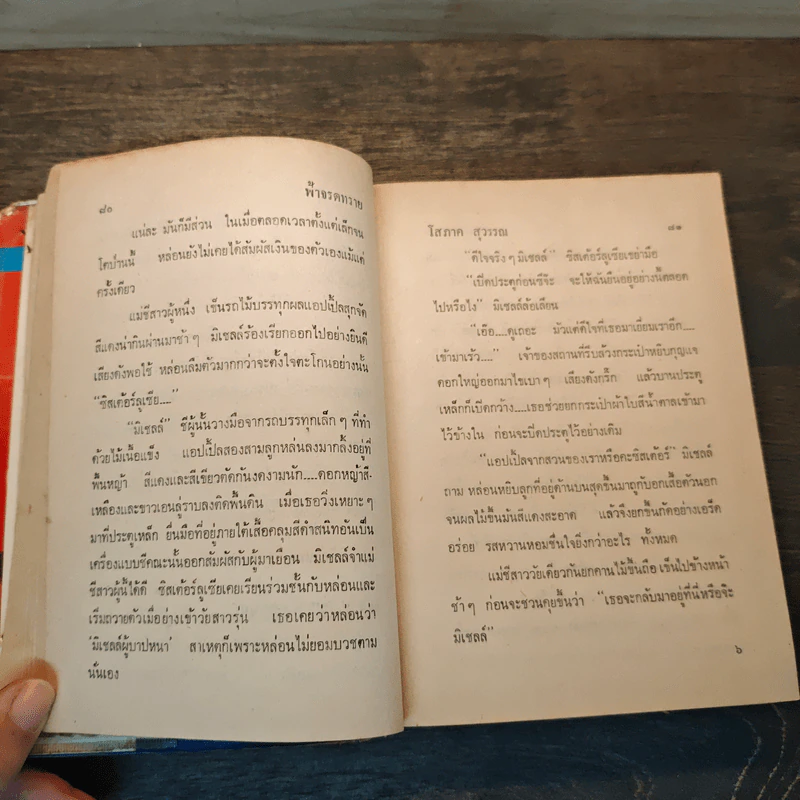 ๘๐
ฟ้าจรดทราย
แน่ละ มันก็มีส่วน ในเมื่อตลอดเวลาตั้งแต่เล็กจน
โตป่านนี้ หล่อนยังไม่เคยได้สัมผัสเงินของตัวเองแม้แต่
ครั้งเดียว
แม่ชีสาวผู้หนึ่ง เข็นรถไม้บรรทุกผลแอปเปิ้ลสุกจัด
สีแดงน่ากินผ่านมาช้า ๆ มิเชลล์ร้องเรียกออกไปอย่างยินดี
เสียงดังพอใช้ หล่อนลืมตัวมากกว่าจะตั้งใจตะโกนอย่างนั้น
"ซิสเต้อร์ลูเซีย...."
"มิเชลล์" ชีผู้นั้นวางมือจากรถบรรทุกเล็ก ๆ ที่ทำ
ด้วยไม้เนื้อแข็ง แอปเปิ้ลสองสามลูกหล่นลงมากลิ้งอยู่ที่
พื้นหญ้า สีแดงและสีเขียวตัดกันงดงามนัก....ดอกหญ้าสี-
เหลืองและขาวเอนลู่ราบลงติดพื้นดิน เมื่อเธอวิ่งเหยาะ ๆ
มาที่ประตูเหล็ก ยื่นมือที่อยู่ภายใต้เสื้อคลุมสีดำสนิทอันเป็น
เครื่องแบบชีคณะนั้นออกสัมผัสกับผู้มาเยือน มิเชลล์จำแม่
ชีสาวผู้นี้ได้ดี ซิสเต้อร์ลูเซียเคยเรียนร่วมชั้นกับหล่อนและ
เริ่มถวายตัวเมื่อย่างเข้าวัยสาวรุ่น เธอเคยว่าหล่อนว่า
'มิเชลล์ผู้บาปหนา' สาเหตุก็เพราะหล่อนไม่ยอมบวชตาม
นั่นเอง
โสภาค สุวรรณ
๘๑
"ดีใจจริง ๆ มิเชลล์" ซิสเต้อร์ลูเซียเขย่ามือ
"เปิดประตูก่อนซีจ๊ะ จะให้ฉันยืนอยู่อย่างนี้ตลอด
ไปหรือไง" มิเชลล์ล้อเลียน
"เอ้อ....ดูเถอะ มัวแต่ดีใจที่เธอมาเยี่ยมเราอีก....
เข้ามาเร็ว...." เจ้าของสถานที่รีบล้วงกระเป๋าหยิบกุญแจ
ดอกใหญ่ออกมาไขเบา ๆ เสียงดังกริ๊ก แล้วบานประตู
เหล็กก็เปิดกว้าง....เธอช่วยฉกกระเป๋าผ้าใบสีน้ำตาลเข้ามา
ไว้ข้างใน ก่อนจะปิดประตูไว้อย่างเดิม
"แอปเปิ้ลจากสวนของเราหรือคะซิสเต้อร์" มิเชลล์
ถาม หล่อนหยิบลูกที่อยู่ด้านบนสุดขึ้นมาถูกับอกเสื้อตัวนอก
จนผลไม้ขึ้นมันสีแดงสะอาด แล้วจึงยกขึ้นกัดอย่างเอร็ด
อร่อย รสหวานหอมชื่นใจยิ่งกว่าอะไร ทั้งหมด
แม่ชีสาววัยเดียวกันยกคานไม้ขึ้นถือ เข็นไปข้างหน้า
ช้า ๆ ก่อนจะชวนคุยขึ้นว่า "เธอจะกลับมาอยู่ที่นี่หรือจ๊ะ
มิเชลล์"
๖